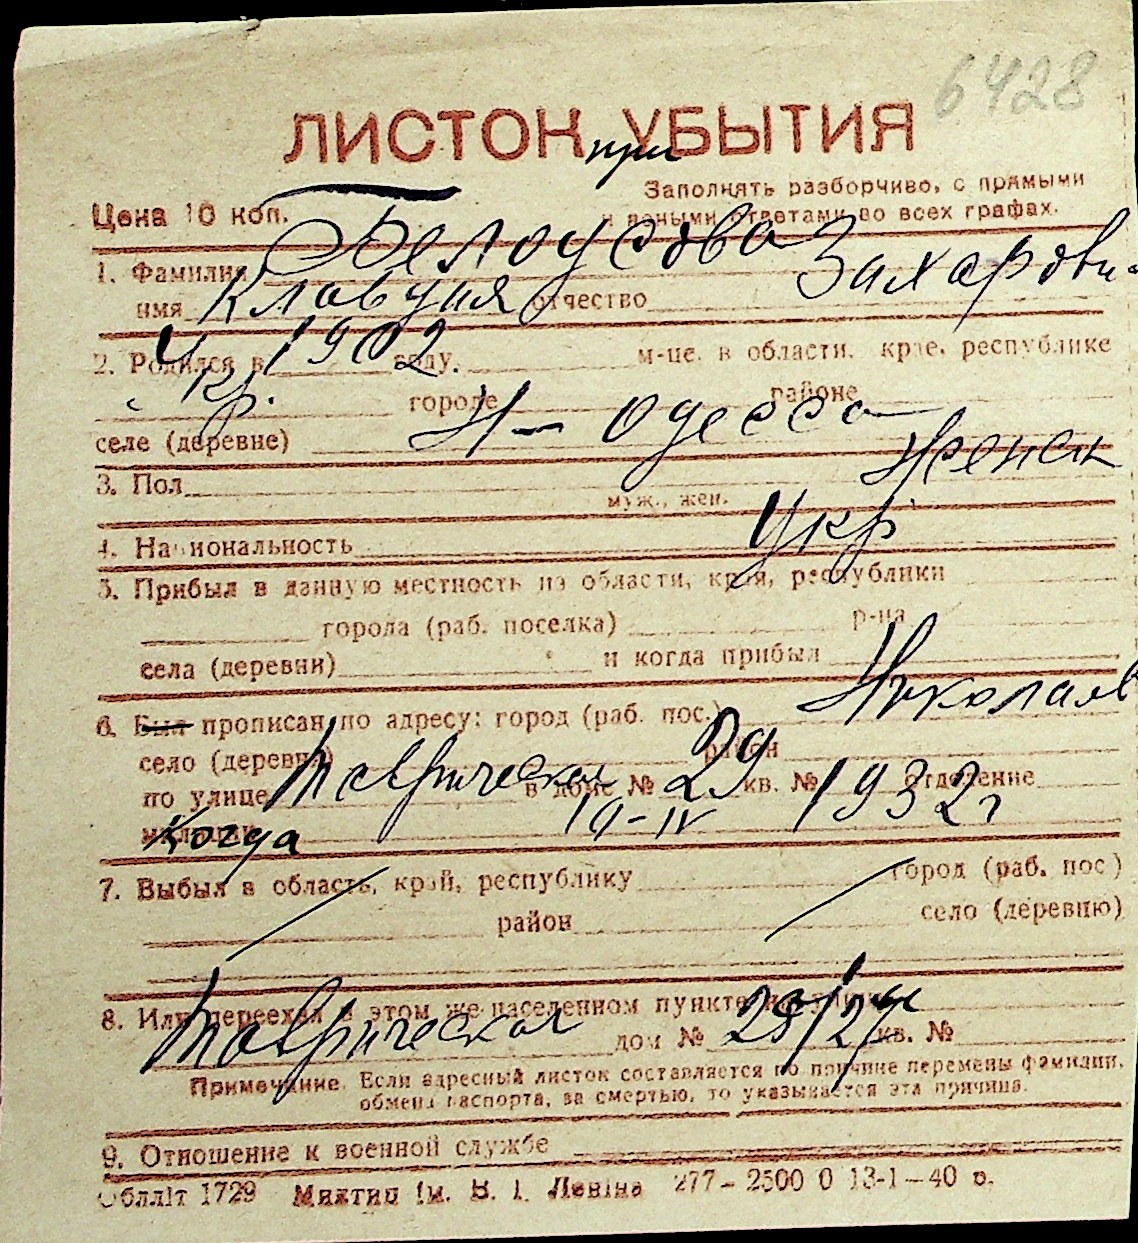 6428
ЛИСТОК при УБЫТИЯ
Заполнять разборчиво, с прямыми
Цена 10 коп. и ясными ответами во всех графах.
1. Фамилия Белоусова
имя Клавдия отчество Захарови-
2. Родился в 1902 году. м-це. в области, крае, республике
Укр. городе районе
селе (деревне) Н-Одесса
3. Пол муж., жен. Женск
4. Национальность Укр
5. Прибыл в данную местность из области, края, республики
города (раб. поселка) р-на
села (деревни) и когда прибыл
6. Был прописан по адресу: город (раб. пос.) Николаев
село (деревня) район
по улице Таврическая в доме № 29 кв. № отделение
милиции Когда 19-IV 1932 г
7. Выбыл в область, край, республику город (раб. пос)
район село (деревню)
8. Или переехал в этом же населенном пункте на улицу
Таврическая дом № кв. №
Примечание. Если адресный листок составляется по причине перемены фамилии,
обмена паспорта, за смертью, то указывается эта причина.
9. Отношение к военной службе
Обллiт 1729 Миктип iм. В. I. Ленiна 277–2500 0 13-1–40 р.